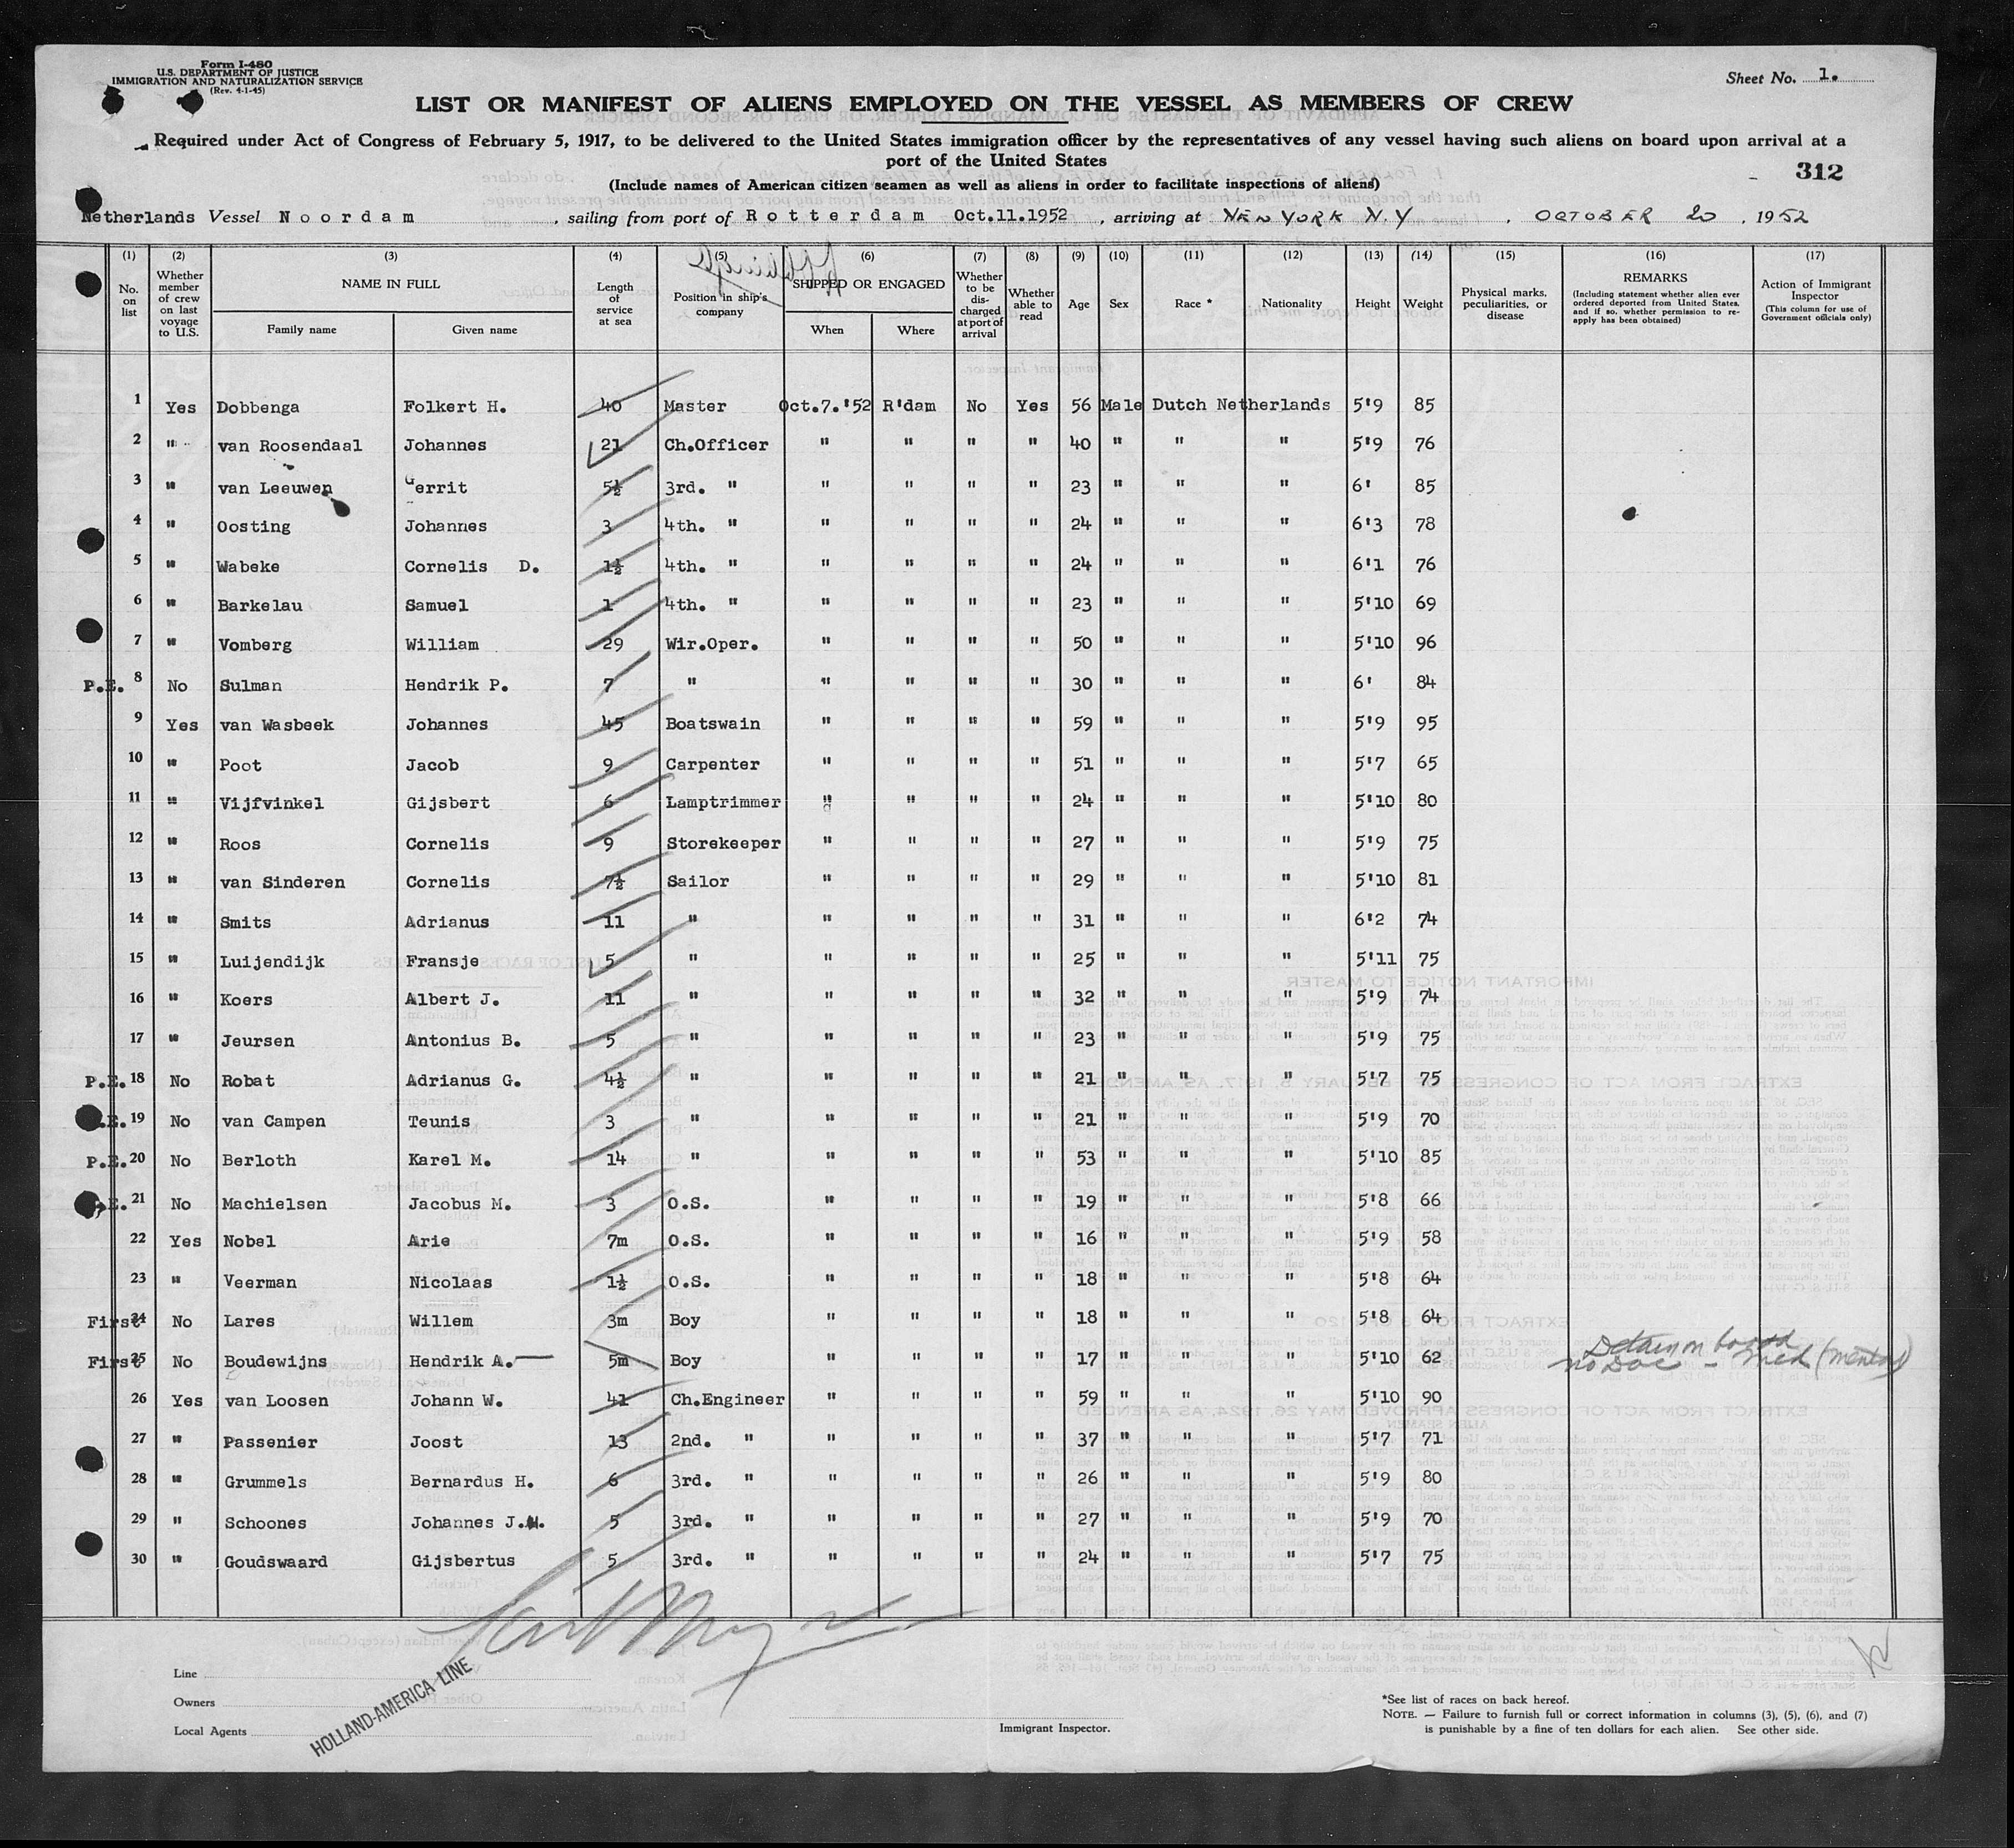 Form I-480
U.S. DEPARTMENT OF JUSTICE
IMMIGRATION AND NATURALIZATION SERVICE
(Rev. 4-1-45)
Sheet No. 1.
LIST OR MANIFEST OF ALIENS EMPLOYED ON THE VESSEL AS MEMBERS OF CREW
Required under Act of Congress of February 5, 1917, to be delivered to the United States immigration officer by the representatives of any vessel having such aliens on board upon arrival at a
port of the United States
312
(Include names of American citizen seamen as well as aliens in order to facilitate inspections of aliens)
Netherlands Vessel Noordam, sailing from port of Rotterdam Oct.11.1952, arriving at NEW YORK N.Y, OCTOBER 20, 1952
(1) (2) (3) (4) (5) (6) (7) (8) (9) (10) (11) (12) (13) (14) (15) (16) (17)
No. on list | Whether member of crew on last voyage to U.S. | NAME IN FULL Family name Given name | Length of service at sea | Position in ship's company | SHIPPED OR ENGAGED When Where | Whether to be discharged at port of arrival | Whether able to read | Age | Sex | Race * | Nationality | Height | Weight | Physical marks, peculiarities, or disease | REMARKS (Including statement whether alien ever ordered deported from United States, and if so, whether permission to reapply has been obtained) | Action of Immigrant Inspector (This column for use of Government officials only)
1 Yes Dobbenga Folkert H. 40 Master Oct.7.'52 R'dam No Yes 56 Male Dutch Netherlands 5'9 85
2 " van Roosendaal Johannes 21 Ch.Officer " " " " 40 " " " 5'9 76
3 " van Leeuwen Gerrit 5½ 3rd. " " " " " 23 " " " 6' 85
4 " Oosting Johannes 3 4th. " " " " " 24 " " " 6'3 78
5 " Wabeke Cornelis D. 1½ 4th. " " " " " 24 " " " 6'1 76
6 " Barkelau Samuel 1 4th. " " " " " 23 " " " 5'10 69
7 " Vomberg William 29 Wir.Oper. " " " " 50 " " " 5'10 96
P.E. 8 No Sulman Hendrik P. 7 " " " " " 30 " " " 6' 84
9 Yes van Wasbeek Johannes 45 Boatswain " " " " 59 " " " 5'9 95
10 " Poot Jacob 9 Carpenter " " " " 51 " " " 5'7 65
11 " Vijfvinkel Gijsbert 6 Lamptrimmer " " " " 24 " " " 5'10 80
12 " Roos Cornelis 9 Storekeeper " " " " 27 " " " 5'9 75
13 " van Sinderen Cornelis 7½ Sailor " " " " 29 " " " 5'10 81
14 " Smits Adrianus 11 " " " " " 31 " " " 6'2 74
15 " Luijendijk Fransje 5 " " " " " 25 " " " 5'11 75
16 " Koers Albert J. 11 " " " " " 32 " " " 5'9 74
17 " Jeursen Antonius B. 5 " " " " " 23 " " " 5'9 75
P.E. 18 No Robat Adrianus G. 4½ " " " " " 21 " " " 5'7 75
.E. 19 No van Campen Teunis 3 " " " " " 21 " " " 5'9 70
P.E. 20 No Berloth Karel M. 14 " " " " " 53 " " " 5'10 85
.E. 21 No Machielsen Jacobus M. 3 O.S. " " " " 19 " " " 5'8 66
22 Yes Nobel Arie 7m O.S. " " " " 16 " " " 5'9 58
23 " Veerman Nicolaas 1½ O.S. " " " " 18 " " " 5'8 64
First 24 No Lares Willem 3m Boy " " " " 18 " " " 5'8 64
First 25 No Boudewijns Hendrik A. 5m Boy " " " " 17 " " " 5'10 62 Detain on board no Doc - med (mental)
26 Yes van Loosen Johann W. 41 Ch.Engineer " " " " 59 " " " 5'10 90
27 " Passenier Joost 13 2nd. " " " " " 37 " " " 5'7 71
28 " Grummels Bernardus H. 6 3rd. " " " " " 26 " " " 5'9 80
29 " Schoones Johannes J.M. 5 3rd. " " " " " 27 " " " 5'9 70
30 " Goudswaard Gijsbertus 5 3rd. " " " " " 24 " " " 5'7 75
Line
Owners
Local Agents
HOLLAND-AMERICA LINE
Immigrant Inspector.
*See list of races on back hereof.
NOTE. — Failure to furnish full or correct information in columns (3), (5), (6), and (7)
is punishable by a fine of ten dollars for each alien. See other side.